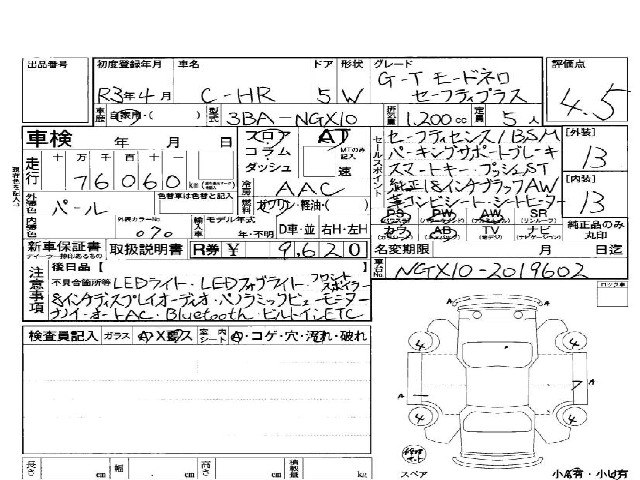 出品番号 初度登録年月 車名 ドア 形状 グレード 評価点
R3年4月 C-HR 5 W G-T モードネロ セーフティプラス 4.5
車歴 自家用・( ) 型式 3BA-NGX10 排気量 1,200cc 定員 5人
車検 年 月 日
フロア AT
コラム MTのみ記入
ダッシュ 速
セールスポイント
セーフティセンス/BSM
パーキングサポートブレーキ
スマートキー・プッシュST
純正18インチアブラックAW
革コンビシート・シートヒーター
[外装] 13
[内装] 13
走行 十万 万 千 百 十 一
76060 km
冷房 AAC
外装色 パール 色替車は色替と記入
外装カラーNo 070
燃料 ガソリン・軽油・( )
輸入車 モデル年式 年・不明 D車・並 右H・左H
PS PW AW SR
カワ AB TV ナビ
純正品のみ丸印
新車保証書 取扱説明書 R券 ¥ 9,620
名変期限 月 日迄
車台No NGX10-2019602
注意事項
後日品[ ]
不具合箇所等 LEDライト・LEDフォグライト・フロントスポイラー
8インチディスプレイオーディオ・パノラミックビューモニター
ナノイー・オートAC・Bluetooth・ビルトインETC
ロック車
検査員記入 ガラス A・X・ス 室内 A・コゲ・穴・汚れ・破れ
4 A A 4
A
4 4
スペア
小A有・小U有
長さ cm 幅 cm 高さ cm 積載量 kg